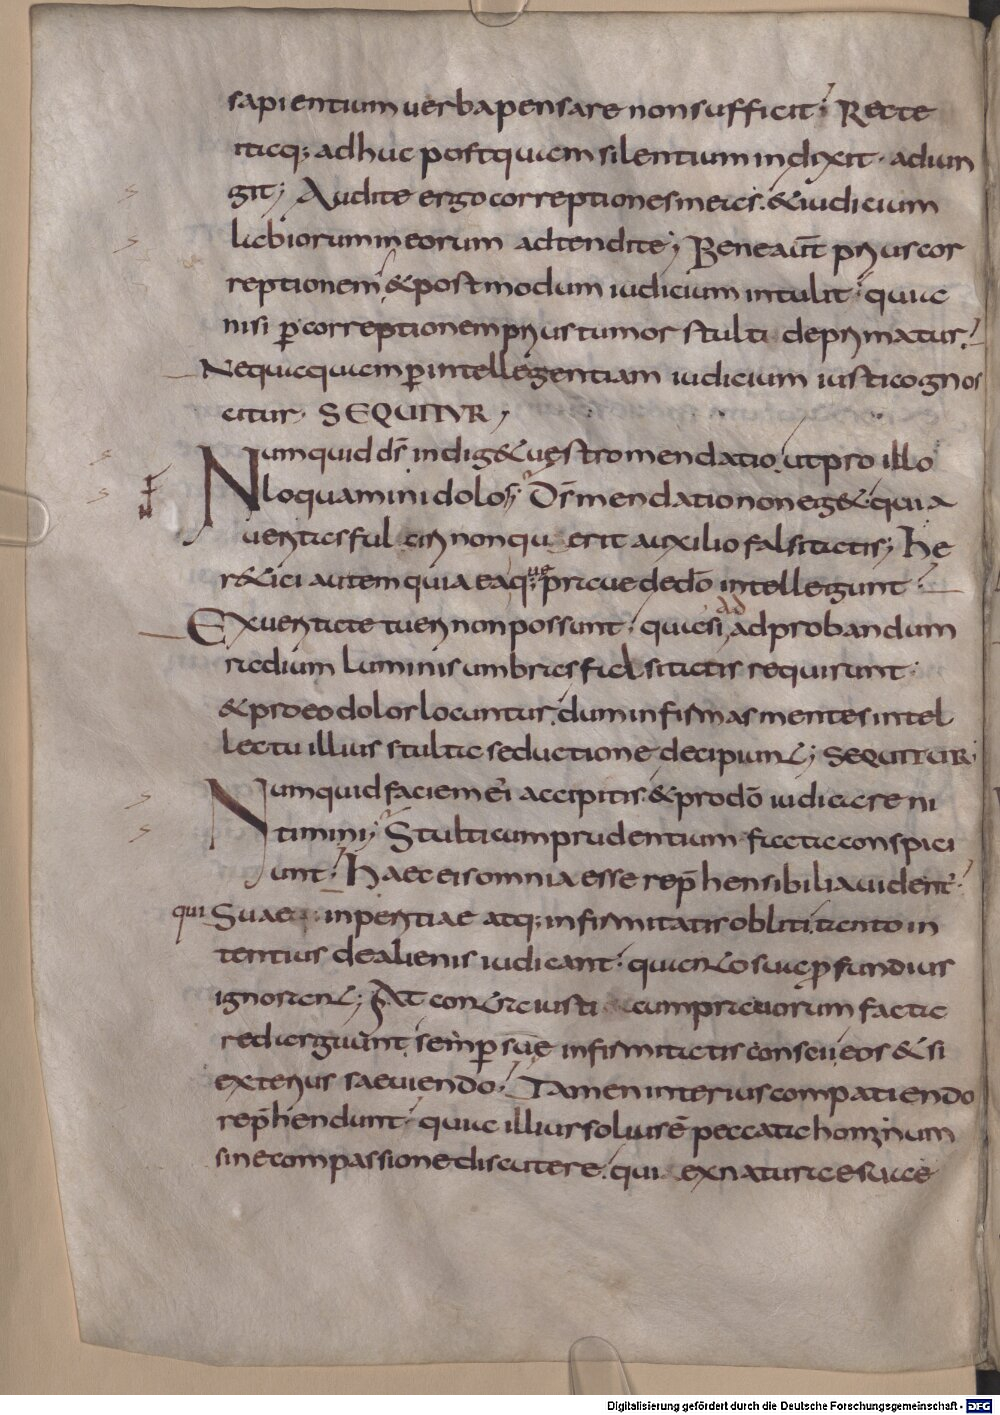 sapientium uerba pensare non sufficit; Recte
itaq; adhuc postquam silentium indixit. adiun
git; Audite ergo correptiones meas. & iudicium
labiorum meorum adtendite; Bene aut̄ prius cor
reptionem. & postmodum iudicium intulit. quia
nisi ꝑ correptionem prius tumor stulti deprimatur.
Nequaquam ꝑ intellegentiam iudicium iusti cognos
citur; SEQUITUR;
Numquid ds̄ indig& uestro mendatio. ut pro illo
loquamini dolos; Ds̄ mendatio non eg&. quia
ueritas fulciri non querit auxilio falsitatis; He
r&ici autem quia ea q; praue de dō intellegunt.
Ex ueritate tueri non possunt. quasi ad ad probandum
radium luminis umbras falsitatis requirunt.
& pro eo dolos locuntur. dum infirmas mentes intel
lectu illius stulta seductione decipiunt; SEQUITUR;
Numquid faciem ei accipitis. & pro dō iudicare ni
timini; Stulti cum prudentium facta conspici
unt. Haec eis omnia esse rep̄hensibilia uident̄.
qui Suae inperitiae atq; infirmitatis obliti. tanto in
tentius de alienis iudicant. quanto sua ꝓfundius
ignorant; At contra iusti cum prauorum facta
redarguunt. semꝑ suae infirmitatis conscii. eos & si
exterius saeuiendo. Tamen interius compatiendo
rep̄hendunt. quia illius solius ē peccata hominum
sine compassione discutere. qui ex naturae suae
Digitalisierung gefördert durch die Deutsche Forschungsgemeinschaft - DFG